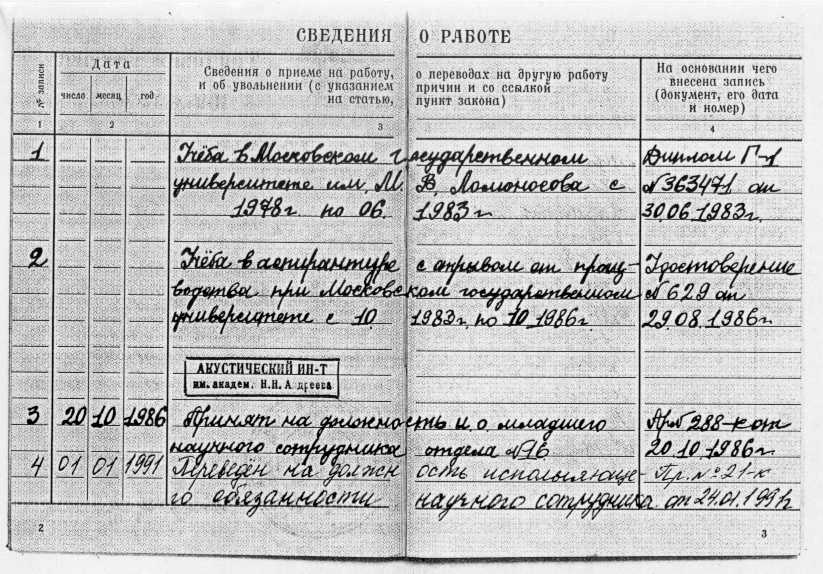 СВЕДЕНИЯ О РАБОТЕ
№ записи
Дата
число
месяц
год
Сведения о приеме на работу, о переводах на другую работу
и об увольнении (с указанием причин и со ссылкой
на статью, пункт закона)
На основании чего
внесена запись
(документ, его дата
и номер)
1 2 3 4
1 Учёба в Московском государственном Диплом Г-I
университете им. М. В. Ломоносова с №363471 от
1978г по 06. 1983г 30.06.1983г.
2 Учёба в аспирантуре с отрывом от произ- Удостоверение
водства при Московском государственном №629 от
университете с 10 1983г. по 10 1986г. 29.08.1986г
АКУСТИЧЕСКИЙ ИН-Т
им. академ. Н.Н. Андреева
3 20 10 1986 Принят на должность и.о. младшего Пр№288-к от
научного сотрудника отдела №16 20.10.1986г
4 01 01 1991 Переведён на должность исполняюще- Пр. №21-к
го обязанности научного сотрудника. от 24.01.1991г
2 3